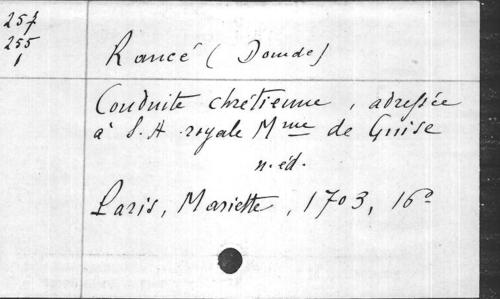 257
255
1
Rancé (Dom de)
Conduite chrétienne, adressée
à S. A royale Mme de Guise
n. éd.
Paris, Mariette, 1703, 16º